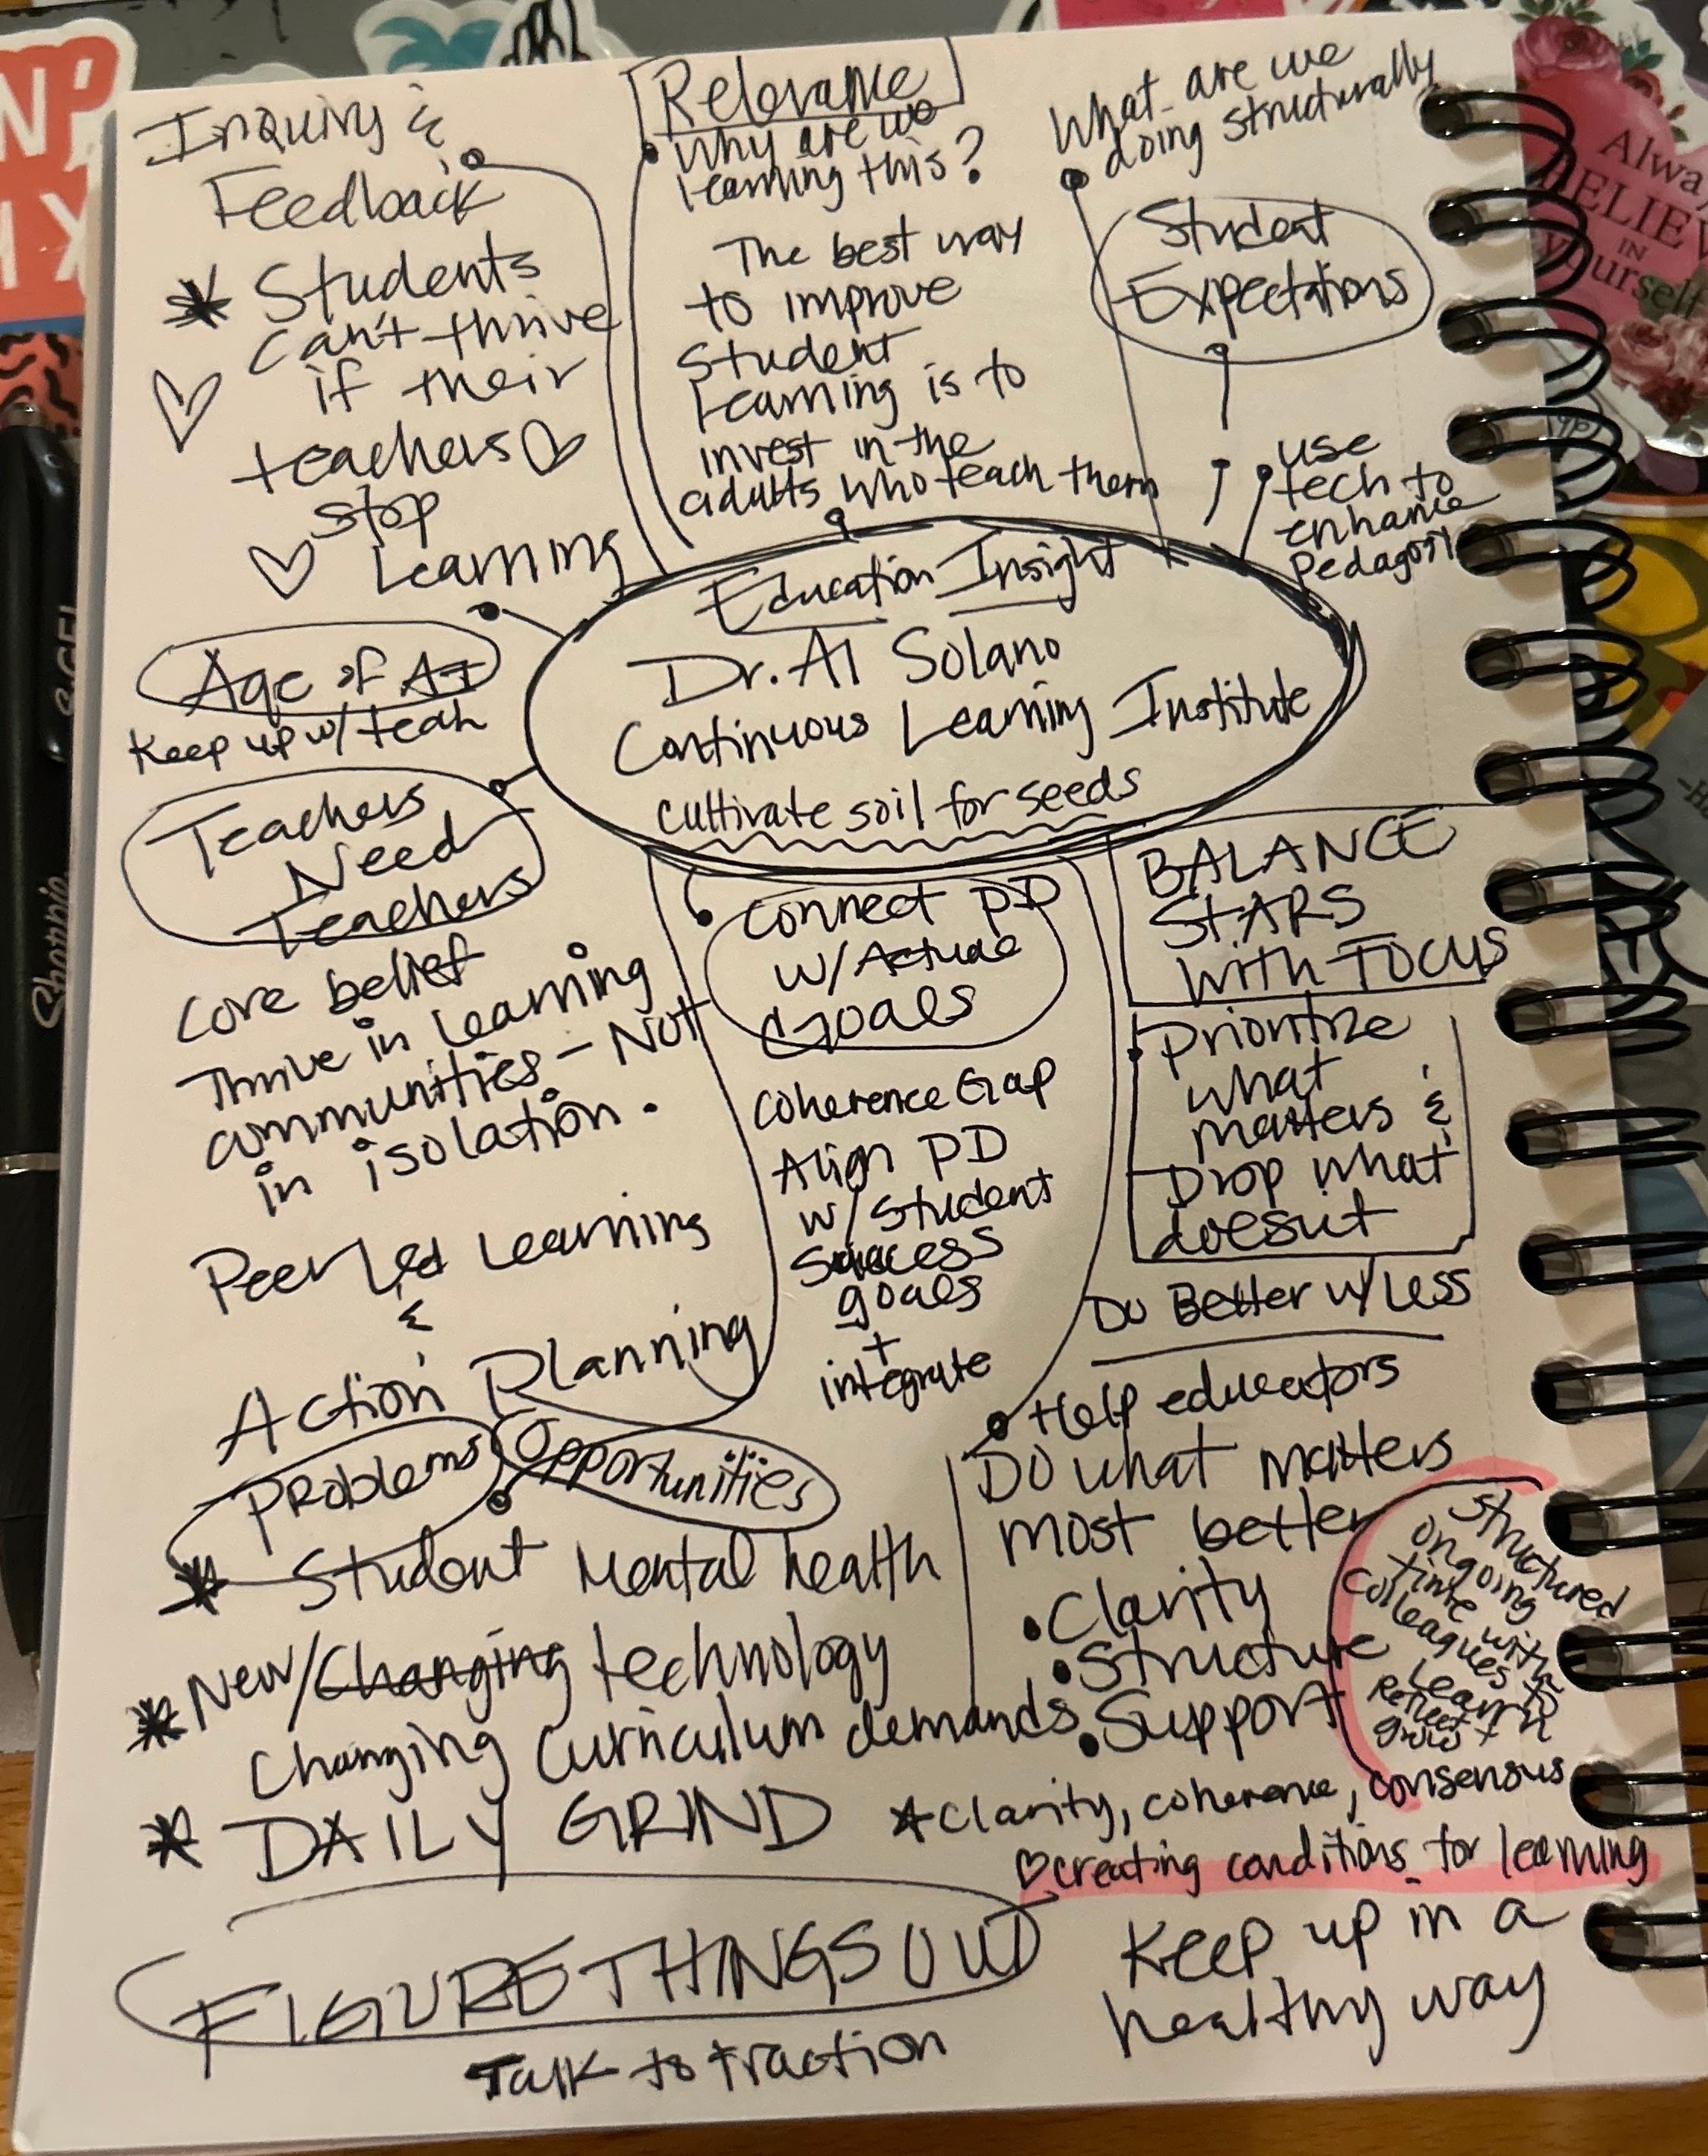 Inquiry &
Feedback
Students
can't thrive
if their
teachers
stop
Learning
Relevance
Why are we
learning this?
The best way
to improve
Student
Learning is to
invest in the
adults who teach them
What are we
doing structurally
Student
Expectations
use
tech to
enhance
Pedagogy
Education Insight
Dr. Al Solano
Continuous Learning Institute
cultivate soil for seeds
Age of AI
Keep up w/
Teachers
Need
Teachers
Core belief
Thrive in Learning
communities - Not
in isolation.
Peer Led Learning
&
Action Planning
Connect PD
w/ Actual
Goals
Coherence Gap
Align PD
w/ Student
Success
goals
+
integrate
BALANCE
STARS
WITH FOCUS
Prioritize
what
matters &
Drop what
doesn't
Do Better w/ Less
Help educators
Do what matters
most better
• Clarity
• Structure
• Support
Structured
ongoing
time with
colleagues to
Learn
Reflect +
grow
Problems
Opportunities
Student Mental health
New/Changing technology
Changing curriculum demands
DAILY GRIND
Clarity, coherence, consensus
creating conditions for learning
FIGURE THINGS OUT
Keep up in a
healthy way
Talk to traction
Always
BELIEVE
IN
yourself
Sharpie
S·GEL